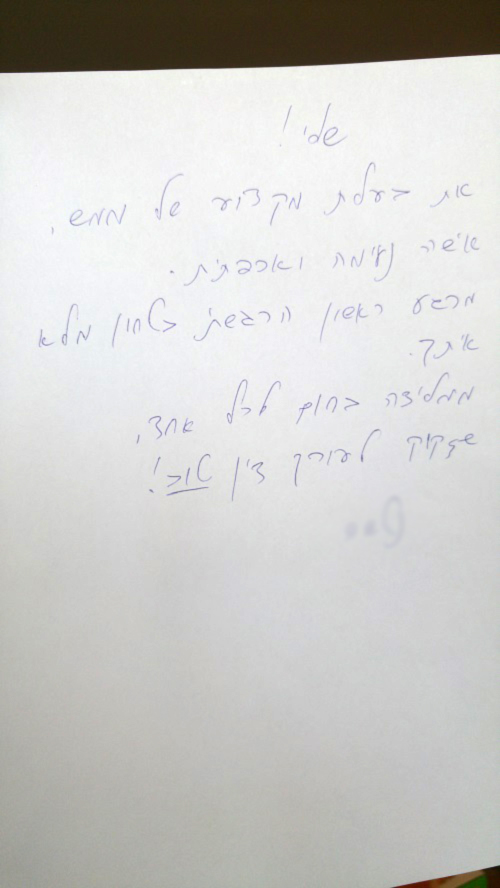 שלי!
את בעלת מקצוע של ממש,
אישה נעימה ואכפתית.
מרגע ראשון הרגשתי בטחון מלא
איתך.
ממליצה בחום לכל אחד,
שזקוק לעורך דין טוב!